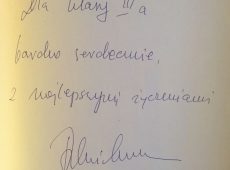 Dla klasy III a
bardzo serdecznie,
z najlepszymi życzeniami